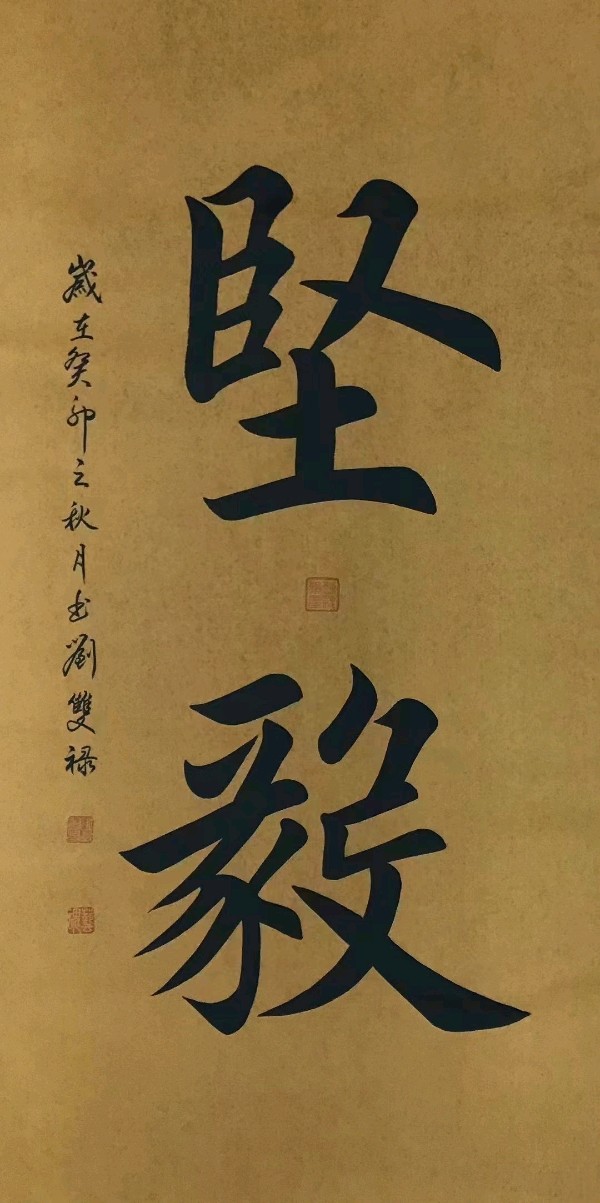 堅毅
歲在癸卯之秋月书劉雙禄